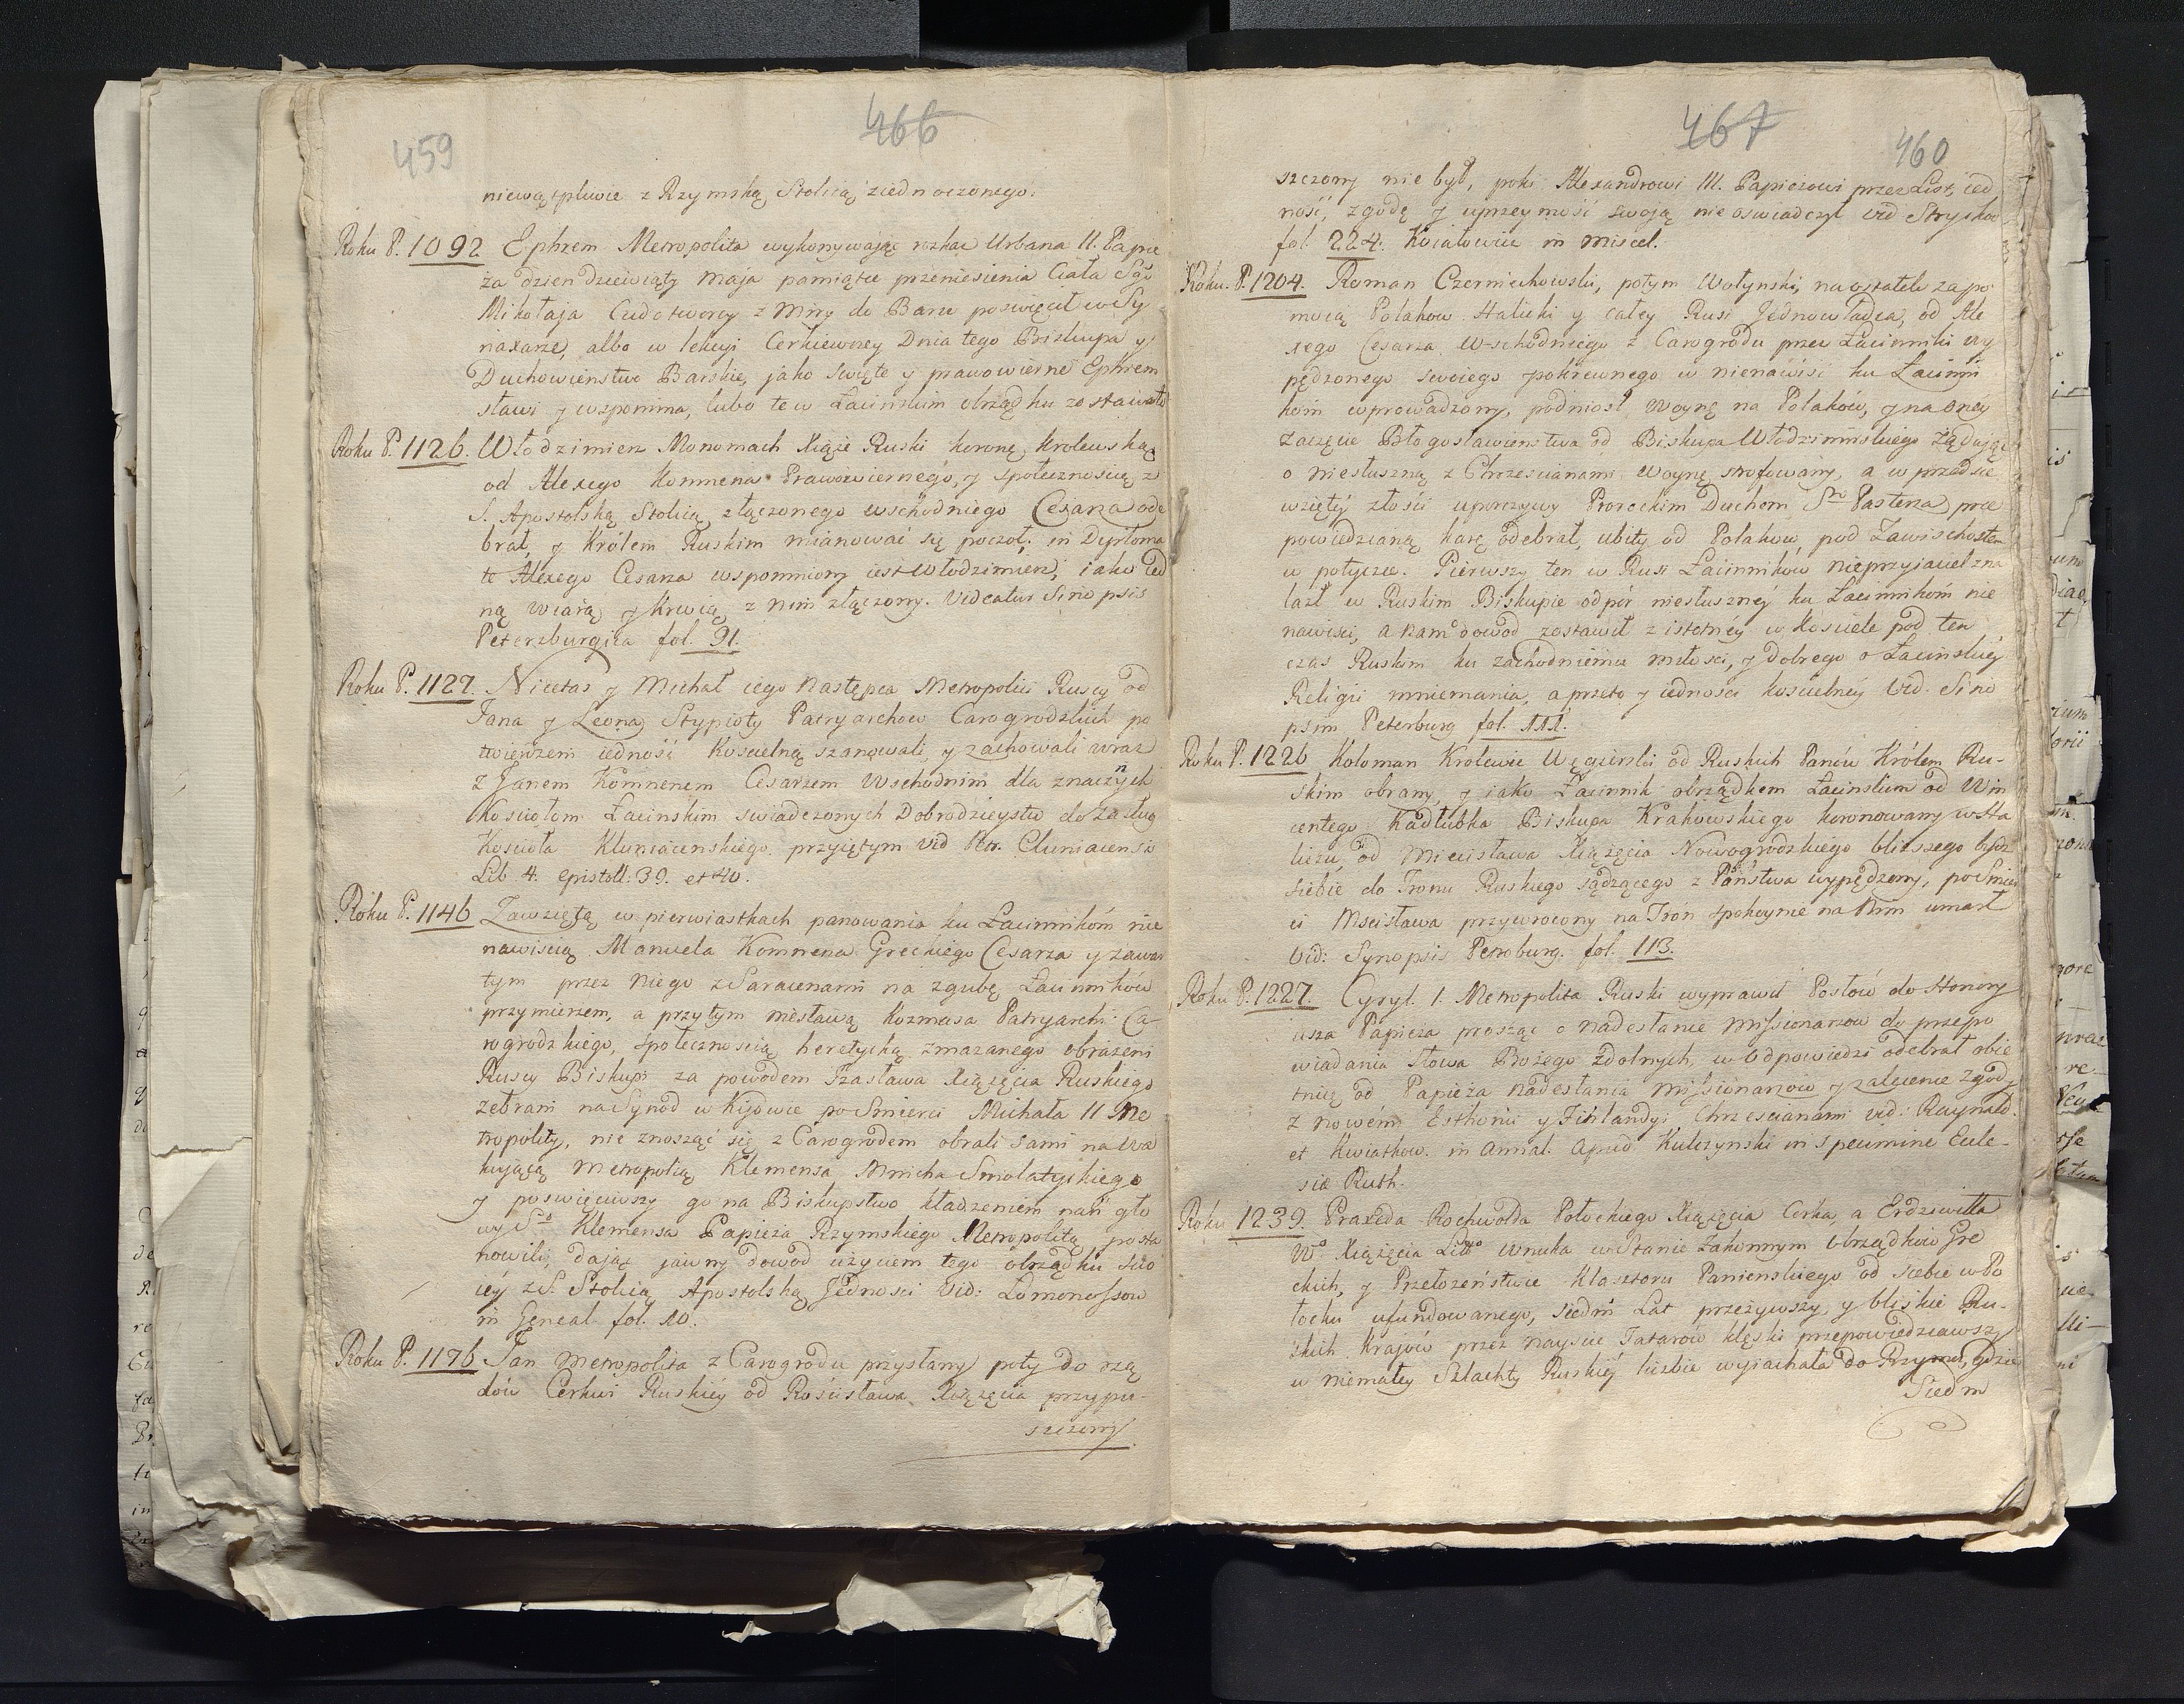 459
466
niewątpliwie z Rzymską Stolicą ziednoczonego.
Roku P. 1092. Ephrem Metropolita wykonywaiąc rozkaz Urbana II. Papie
ża dzien dziewiąty maja pamiątce przeniesienia Ciała Sgo
Mikołaja Cudotworcy z Miry do Baru poswięcił w Sy
naxarze, albo w lekcyi Cerkiewney Dnia tego Biskupa y
Duchowienstwo Barskie, jako swięte y prawowierne Ephrem
sławi y wspomina, lubo te w Łacinskim obrządku zostawało
Roku P. 1126. Włodzimierz Monomach Xiąże Ruski koronę krolewską
od Alexego Komnena Prawowiernego, y społecznoscią z
S. Apostolską Stolicą złączonego wschodniego Cesarza ode
brał, y Królem Ruskim mianować się począł; in Dyploma
te Alexego Cesarza wspomniony iest Włodzimierz, iako ied
ną wiarą y krwią z nim złączony. Videatur Sinopsis
Petersburgica fol. 91.
Roku P. 1127. Nicetas y Michał iego Następca Metropolici Ruscy od
Jana y Leona Stypioty Patryarchow Carogrodzkich po
twierdzeni iedność Koscielną szanowali, y zachowali wraz
z Janem Komnenem Cesarzem Wschodnim dla znacznych
Kosciołom Łacinskim swiadczonych Dobrodzieystw do zasług
Koscioła Kluniacenskiego przyiętym vid Petr. Cluniacensis
Lib. 4. epistoll. 39. et 40.
Roku P. 1146 Zawziętą w pierwiastkach panowania ku Łacinnikóm nie
nawiscią Manuela Komnena Greckiego Cesarza y zawar
tym przez niego z Saracenami na zgubę Łacinników
przymierzem, a przytym niesławą Kozmasa Patryarchi Ca-
rogrodzkiego, społecznoscią heretycką zmazanego obrażeni
Ruscy Biskupi za powodem Izasława Xiążęcia Ruskiego
zebrani na Synod w Kijowie po Smierci Michała II Me
tropolity, nie znosząc się z Carogrodem obrali sami na wa
kującą metropolią Klemensa Mnicha Smolatyckiego
y poswięciwszy go na Biskupstwo kładzeniem nań gło
wy Sgo Klemensa Papieża Rzymskiego Metropolitą posta
nowili, dając jawny dowod użyciem tego obrządku swo
iey z S. Stolicą Apostolską Jednosci vid: Lomonossow
in Geneal. fol. 10.
Roku P. 1176 Jan metropolita z Carogrodu przysłany poty do rzą
dów Cerkwi Ruskiéy od Rościsława Xiążęcia przypu-
szczony
467
460
szczony nie był, poki Alexandrowi III. Papieżowi przez List, ied
ność, zgodę y uprzeymość swoją nie oswiadczył vid Stryiko
fol. 224. Kwiatowic in miscel.
Roku. P. 1204. Roman Czerniechowski, potym Wołynski, naostatek za po
mocą Polakow Halicki y całey Rusi Jednowładca, od Ale
xego Cesarza Wschodniego z Carogrodu przez Łacinniki wy
pędzonego swoiego pokrewnego w nienawisć ku Łacinni
kóm wprowadzony, podniosł woynę na Polaków, y na onéy
zaczęcie Błogosławienstwa od Biskupa Włodzimirskiego żądając
o niesłuszną z Chrzescianami woynę strofowany, a w przedsię
wziętéy złości uporczywy Prorockim Duchem Sgo Pasterza prze
powiedzianą karę odebrał, ubity od Polakow pod Zawischostem
w potyczce. Pierwszy ten w Rusi Łacinników nieprzyiaciel zna
lazł w Ruskim Biskupie odpór niesłusznéy ku Łacinnikóm nie
nawisci, a nam dowod zostawił z istotnéy w kosciele pod ten
czas Ruskim ku zachodniemu miłosci, y dobrego o Łacinskiéy
Religii mniemania, a przeto y iedności koscielnéy vid. Sino
psim Peterburg fol. 111.
Roku P. 1226 Koloman Krolewic Węgierski od Ruskich Panów Królem Ru-
skim obrany, y iako Łacinnik obrządkiem Łacinskim od Win
centego Kadłubka Biskupa Krakowskiego koronowany w Ha
liczu, od Mscisława Xiążęcia Nowogrodzkiego bliższego bydz
siebie do Tronu Ruskiego sądzącego z Państwa wypędzony, po Smier
ci Mscisława przywrocony na Trón spokoynie na nim umarł
vid: Synopsis Petroburg. fol. 113.
Roku P. 1227. Cyryl. I. Metropolita Ruski wyprawił Posłów do Honory
usza Papieża prosząc o nadesłanie Missionarzow do przepo
wiadania słowa Bożego zdolnych, w odpowiedzi odebrał obie
tnicę od Papieża nadesłania Missionarzow y zalecenie zgody
z nowemi Esthonii y Finlandyi Chrzescianami vid: Raynald.
et Kwiatkow. in Annal. apud Kulczynski in Specimine Eccle-
siæ Ruth.
Roku 1239. Praxeda Rochwolda Połockiego Xiążęcia Corka, a Erdziwiłła
Wo Xiążęcia Litto wnuka w Stanie Zakonnym obrządków Gre
ckich, y Przełożeństwie Klasztoru Panienskiego od siebie w Po
łocku ufundowanego, siedm Lat przeżywszy, y bliskie Ru-
skich Krajów przez nayscie Tatarów klęski przepowiedziawszy
w niemałey Szlachty Ruskiéy liczbie wyiachała do Rzymu, gdzie
Siedm